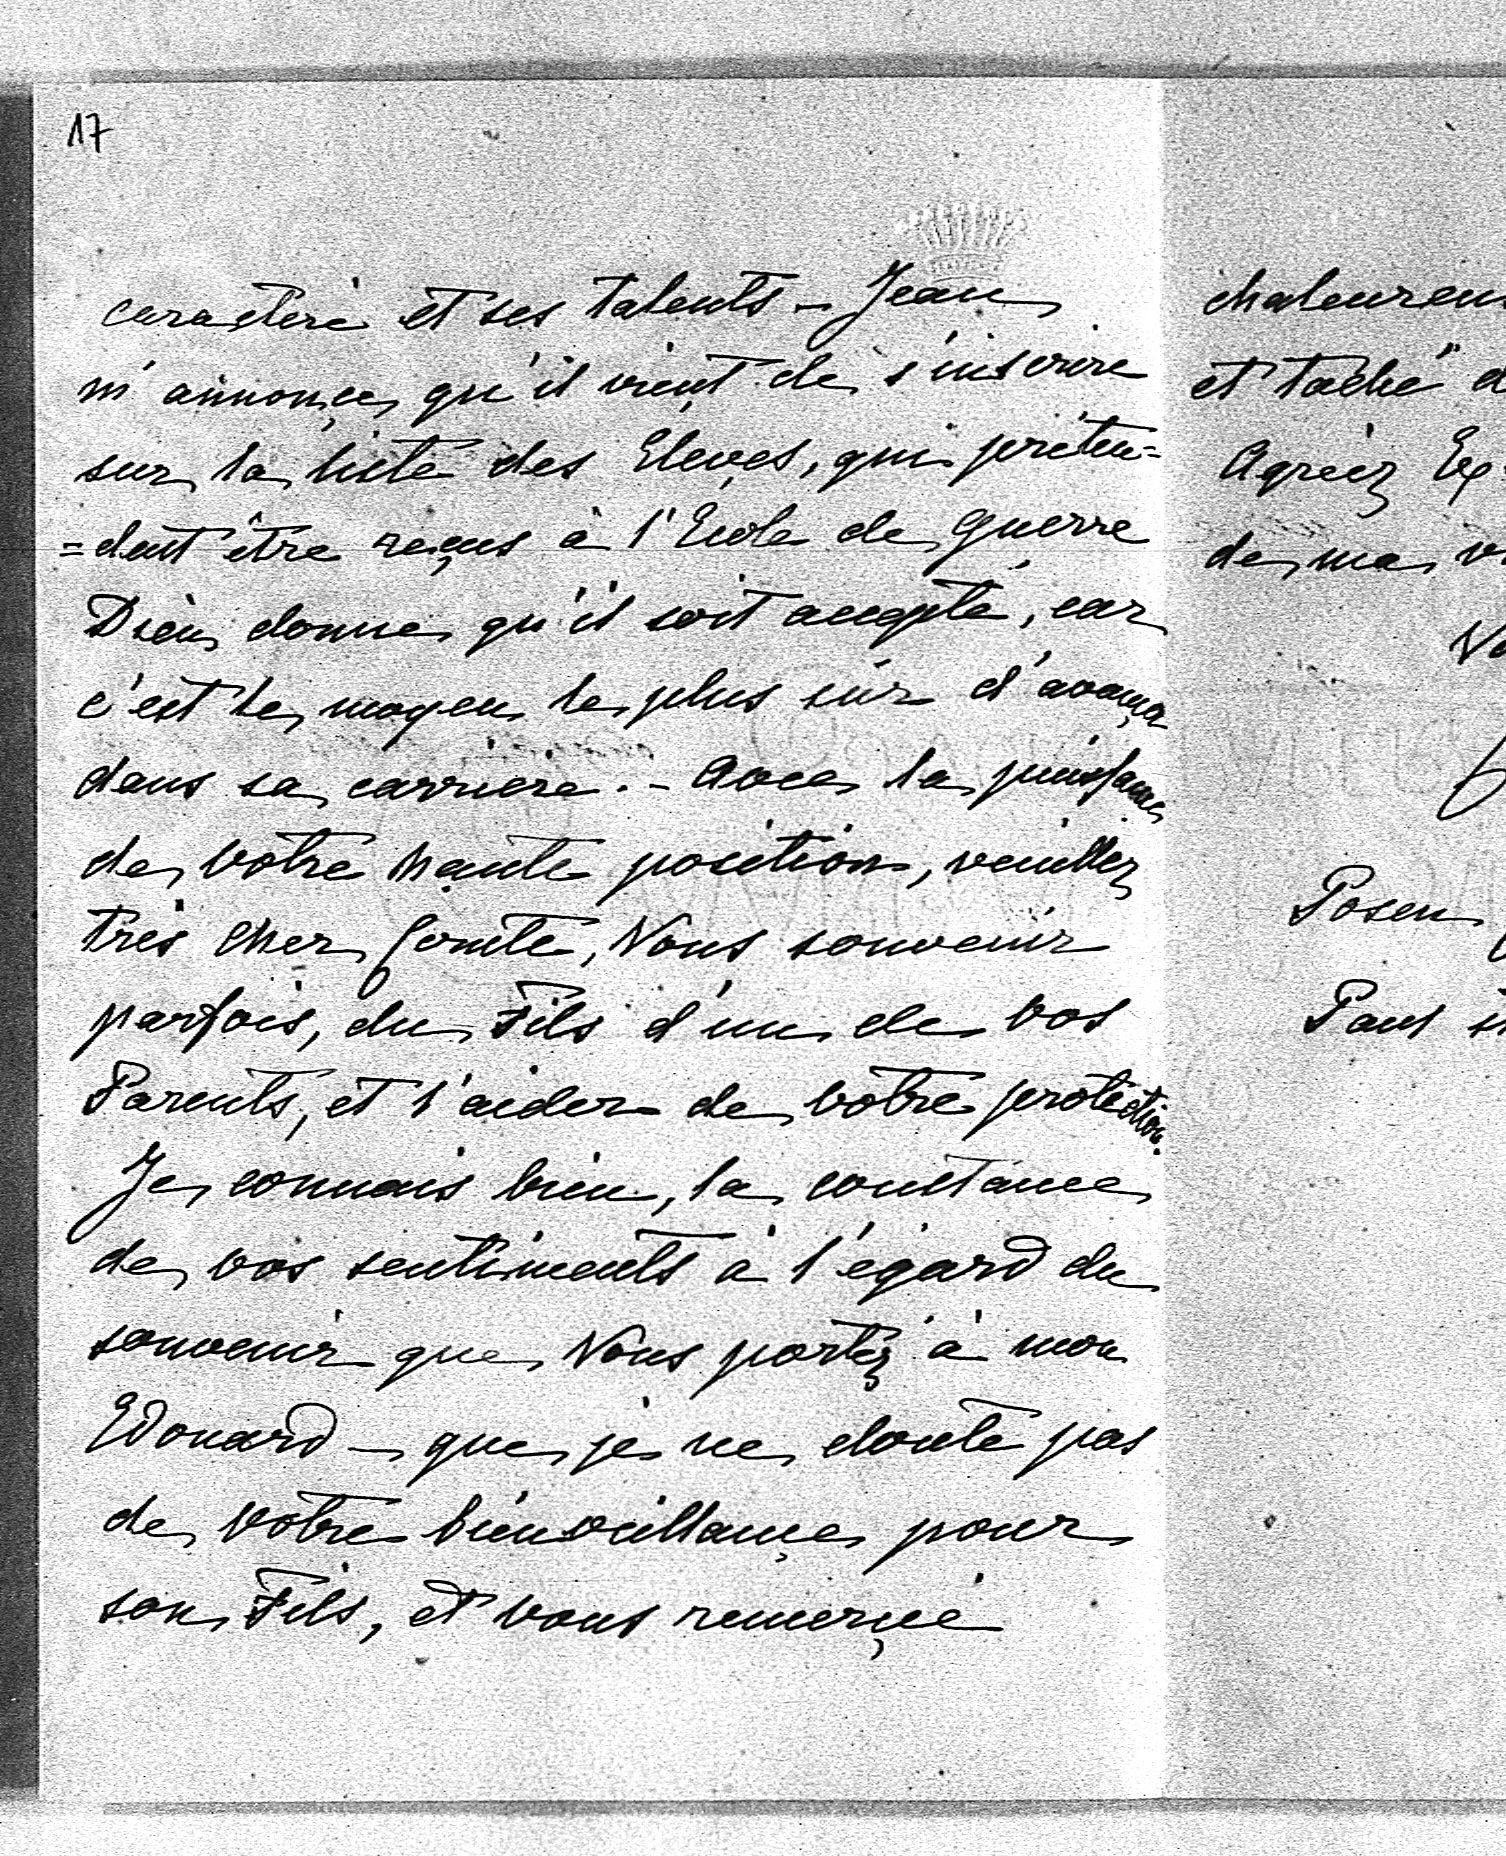 17
caractère et ses talents - Jean
m'annonce qu'il vient de s'inscrire
sur la liste des Elèves, qui préten=
=dent être reçus à l'Ecole de guerre
Dieu donne qu'il soit accepté, car
c'est le moyen le plus sûr d'avançer
dans sa carrière. - Avec la puissance
de votre haute position, veuillez
très cher Comte, Vous souvenir
parfois, du Fils d'un de vos
Parents, et l'aider de votre protection.
Je connais bien, la constance
de vos sentiments à l'égard du
souvenir que Vous portez à mon
Edouard - que je ne doute pas
de votre bienveillançe pour
son Fils, et vous remerçie
chaleureu
et taché d
Agréez Ex
de ma v
Vo
Posen